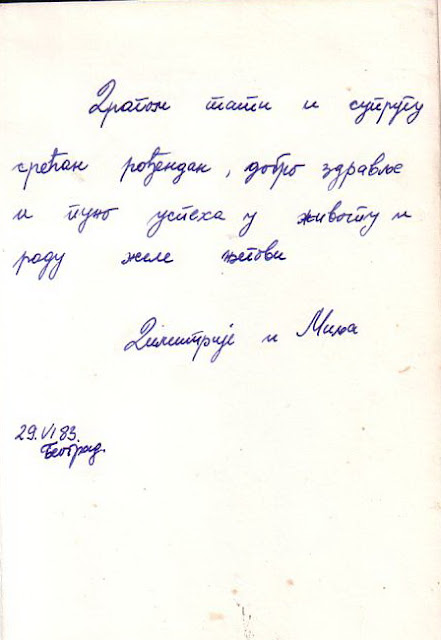 Драгом тати и супругу
срећан рођендан, добро здравље
и пуно успеха у животу и
раду желе његови
Димитрије и Миља
29. VI 83.
Београд.